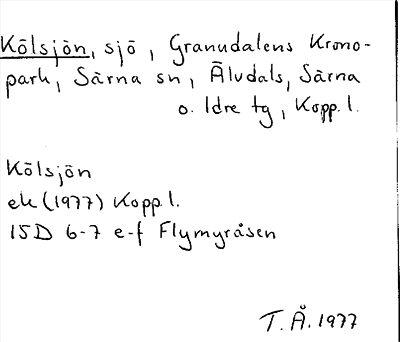 Kölsjön, sjö, Granudalens Krono-
park, Särna sn, Älvdals, Särna
o. Idre tg, Kopp. l.
Kölsjön
ek (1977) Kopp. l.
15D 6-7 e-f Flymyråsen
T. Å. 1977